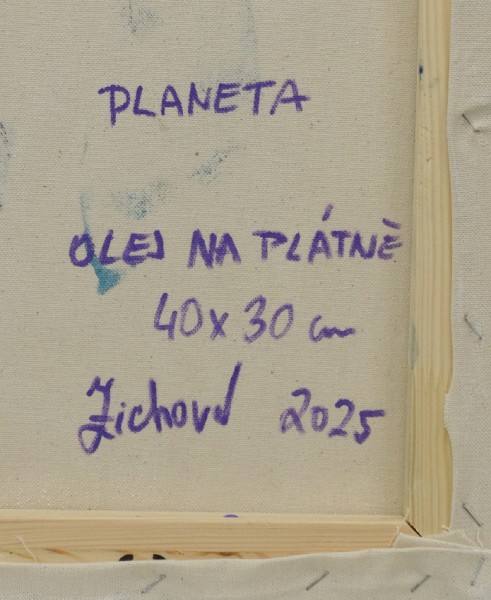 PLANETA
OLEJ NA PLÁTNĚ
40x30 cm
Zichová 2025